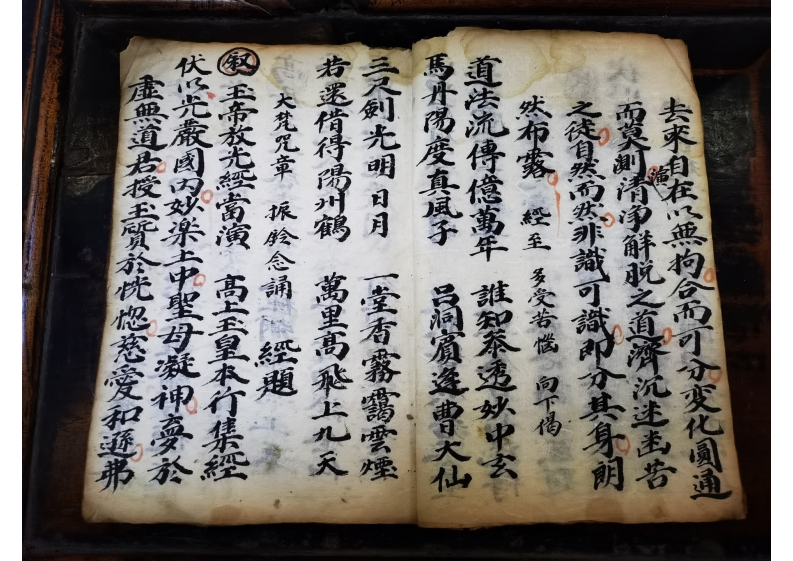 去來自在以無拘合而可分變化圓通
而莫測演清淨解脫之道濟沉迷幽苦
之徒自然而然非識可識即分其身朗
然布露 經至 多受苦惱 向下偈
道法流傳億萬年 誰知參透妙中玄
馬丹陽度真風子 呂洞賓逢曹大仙
三尺劍光明日月 一堂香霧靄雲煙
若還借得陽州鶴 萬里高飛上九天
大梵咒章 振鈴念誦 經題
叙 玉帝放光經當演 高上玉皇本行集經
伏以光嚴國內妙楽土中聖母凝神夢於
虛無道君授玉質於恍惚慈愛和遜弗